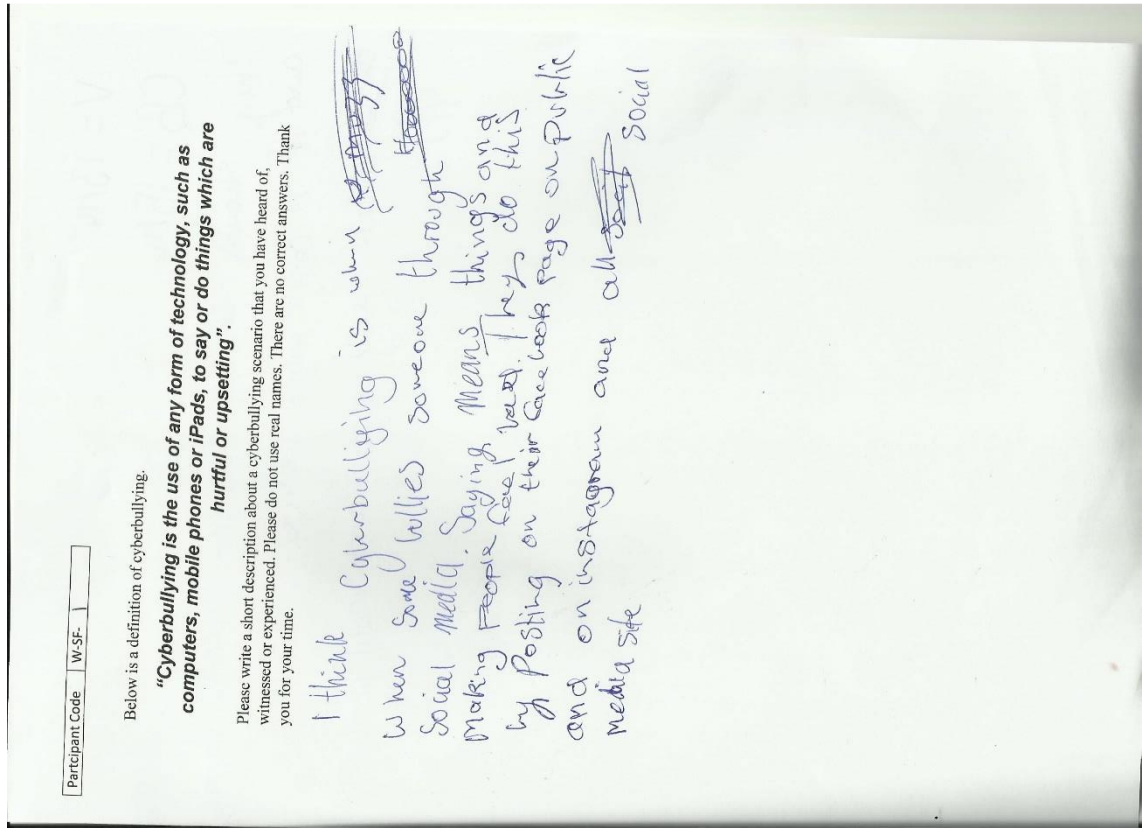 Partcipant Code W-SF- 1
Below is a definition of cyberbullying.
“Cyberbullying is the use of any form of technology, such as
computers, mobile phones or iPads, to say or do things which are
hurtful or upsetting”.
Please write a short description about a cyberbullying scenario that you have heard of,
witnessed or experienced. Please do not use real names. There are no correct answers. Thank
you for your time.
I think Cyberbullying is when
when some bullies someone through
social media. Saying means things and
making People feel bad. They do this
by Posting on their facebook page on public
and on instagram and all social
media site